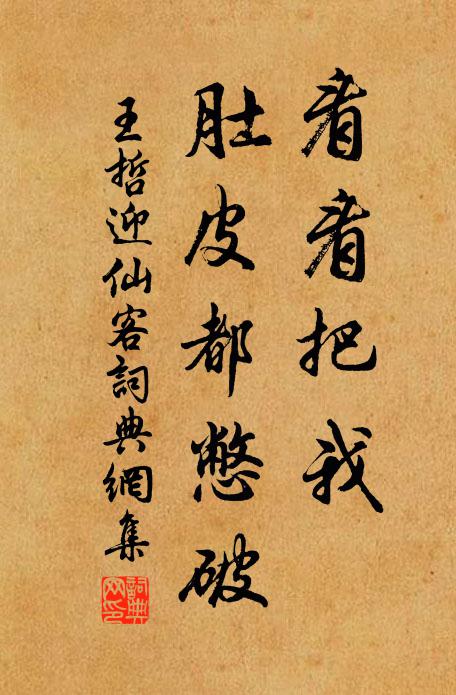 看看把我
肚皮都憋破
王哲迎仙客詞典網集
詞典網印